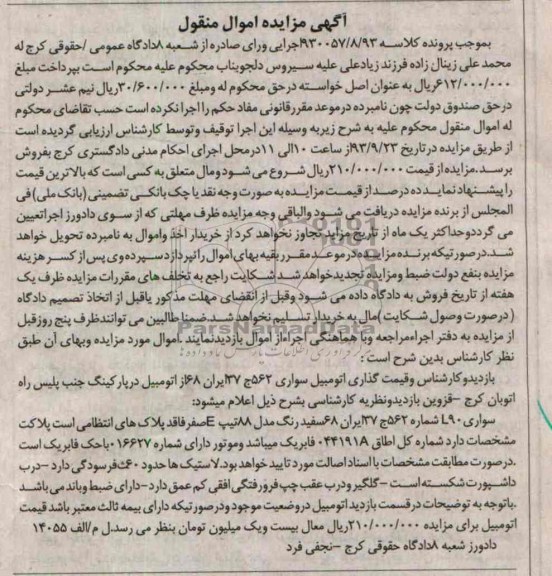 آگهی مزایده اموال منقول
بموجب پرونده کلاسه ۹۳۰۰۵۷/۸/۹۳اجرایی ورای صادره از شعبه ۸دادگاه عمومی /حقوقی کرج له
محمد علی زینال زاده فرزند زیادعلی علیه سیروس دلجویناب محکوم علیه محکوم است بپرداخت مبلغ
۶۱۲/۰۰۰/۰۰۰ریال به عنوان اصل خواسته در حق محکوم له ومبلغ ۳۰/۶۰۰/۰۰۰ریال نیم عشر دولتی
در حق صندوق دولت چون نامبرده در موعد مقرر قانونی مفاد حکم را اجرا نکرده است حسب تقاضای محکوم
له اموال منقول محکوم علیه به شرح زیر به وسیله این اجرا توقیف وتوسط کارشناس ارزیابی گردیده است
از طریق مزایده در تاریخ ۹۳/۹/۲۳از ساعت ۱۰الی ۱۱در محل اجرای احکام مدنی دادگستری کرج بفروش
برسد.مزایده از قیمت ۲۱۰/۰۰۰/۰۰۰ریال شروع می شود ومال متعلق به کسی است که بالاترین قیمت
را پیشنهاد نماید ده درصد از قیمت مزایده به صورت وجه نقد یا چک بانکی تضمینی (بانک ملی) فی
المجلس از برنده مزایده دریافت می شود والباقی وجه مزایده ظرف مهلتی که از سوی دادورز اجراتعیین
می گرددوحداکثر یک ماه از تاریخ مزاید تجاوز نخواهد کرد از خریدار اخذ واموال به نامبرده تحویل خواهد
شد.در صورتیکه برنده مزایده در موعد مقرر بقیه بهای اموال را نپردازد سپرده وی پس از کسر هزینه
مزایده بنفع دولت ضبط ومزایده تجدیدخواهد شد شکایت راجع به تخلف های مقررات مزایده ظرف یک
هفته از تاریخ فروش به دادگاه داده می شود وقبل از انقضای مهلت مذکور یاقبل از اتخاذ تصمیم دادگاه
(در صورت وصول شکایت )مال به خریدار تسلیم نخواهد شد.ضمنا طالبین می توانندظرف پنج روزقبل
از مزایده به دفتر اجراءمراجعه وبا هماهنگی اجراءاز اموال بازدیدنمایند .اموال مورد مزایده وبهای آن طبق
نظر کارشناس بدین شرح است :
بازدیدوکارشناس وقیمت گذاری اتومبیل سواری ۵۶۲ج ۳۷ایران ۶۸از اتومبیل در پارکینگ جنب پلیس راه
اتوبان کرج –قزوین بازدیدونظریه کارشناسی بشرح ذیل اعلام میشود:
سواری L۹۰ شماره ۵۶۲ج ۳۷ایران ۶۸سفید رنگ مدل ۸۸تیپ Eصفر فاقد پلاک های انتظامی است پلاکت
مشخصات دارد شماره کل اطاق ۰۴۴۱۹۱۸ فابریک میباشد وموتور دارای شماره ۰۱۶۶۲۷باحک فابریک است
.در صورت مطابقت مشخصات با اسناد اصالت مورد تایید خواهد بود.لاستیک ها حدود ۶۰٪فرسودگی دارد –درب
داشپورت شکسته است –گلگیر ودرب عقب چپ فرورفتگی افقی کم عمق دارد –دارای ضبط وباند می باشد
.باتوجه به توضیحات در قسمت بازدید اتومبیل در وضعیت موجود ودر صورتیکه دارای بیمه ثالث معتبر باشد قیمت
اتومبیل برای مزایده ۲۱۰/۰۰۰/۰۰۰ریال معال بیست ویک میلیون تومان بنظر می رسد.ل م/الف ۱۴۰۵۵
دادورز شعبه ۸دادگاه حقوقی کرج –نجفی فرد
ParsNamadData